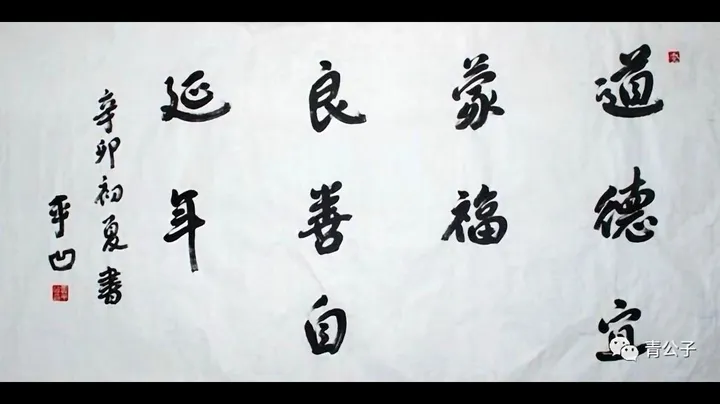 道德宜
蒙福
良善自
延年
辛卯初夏書
平凹
青公子